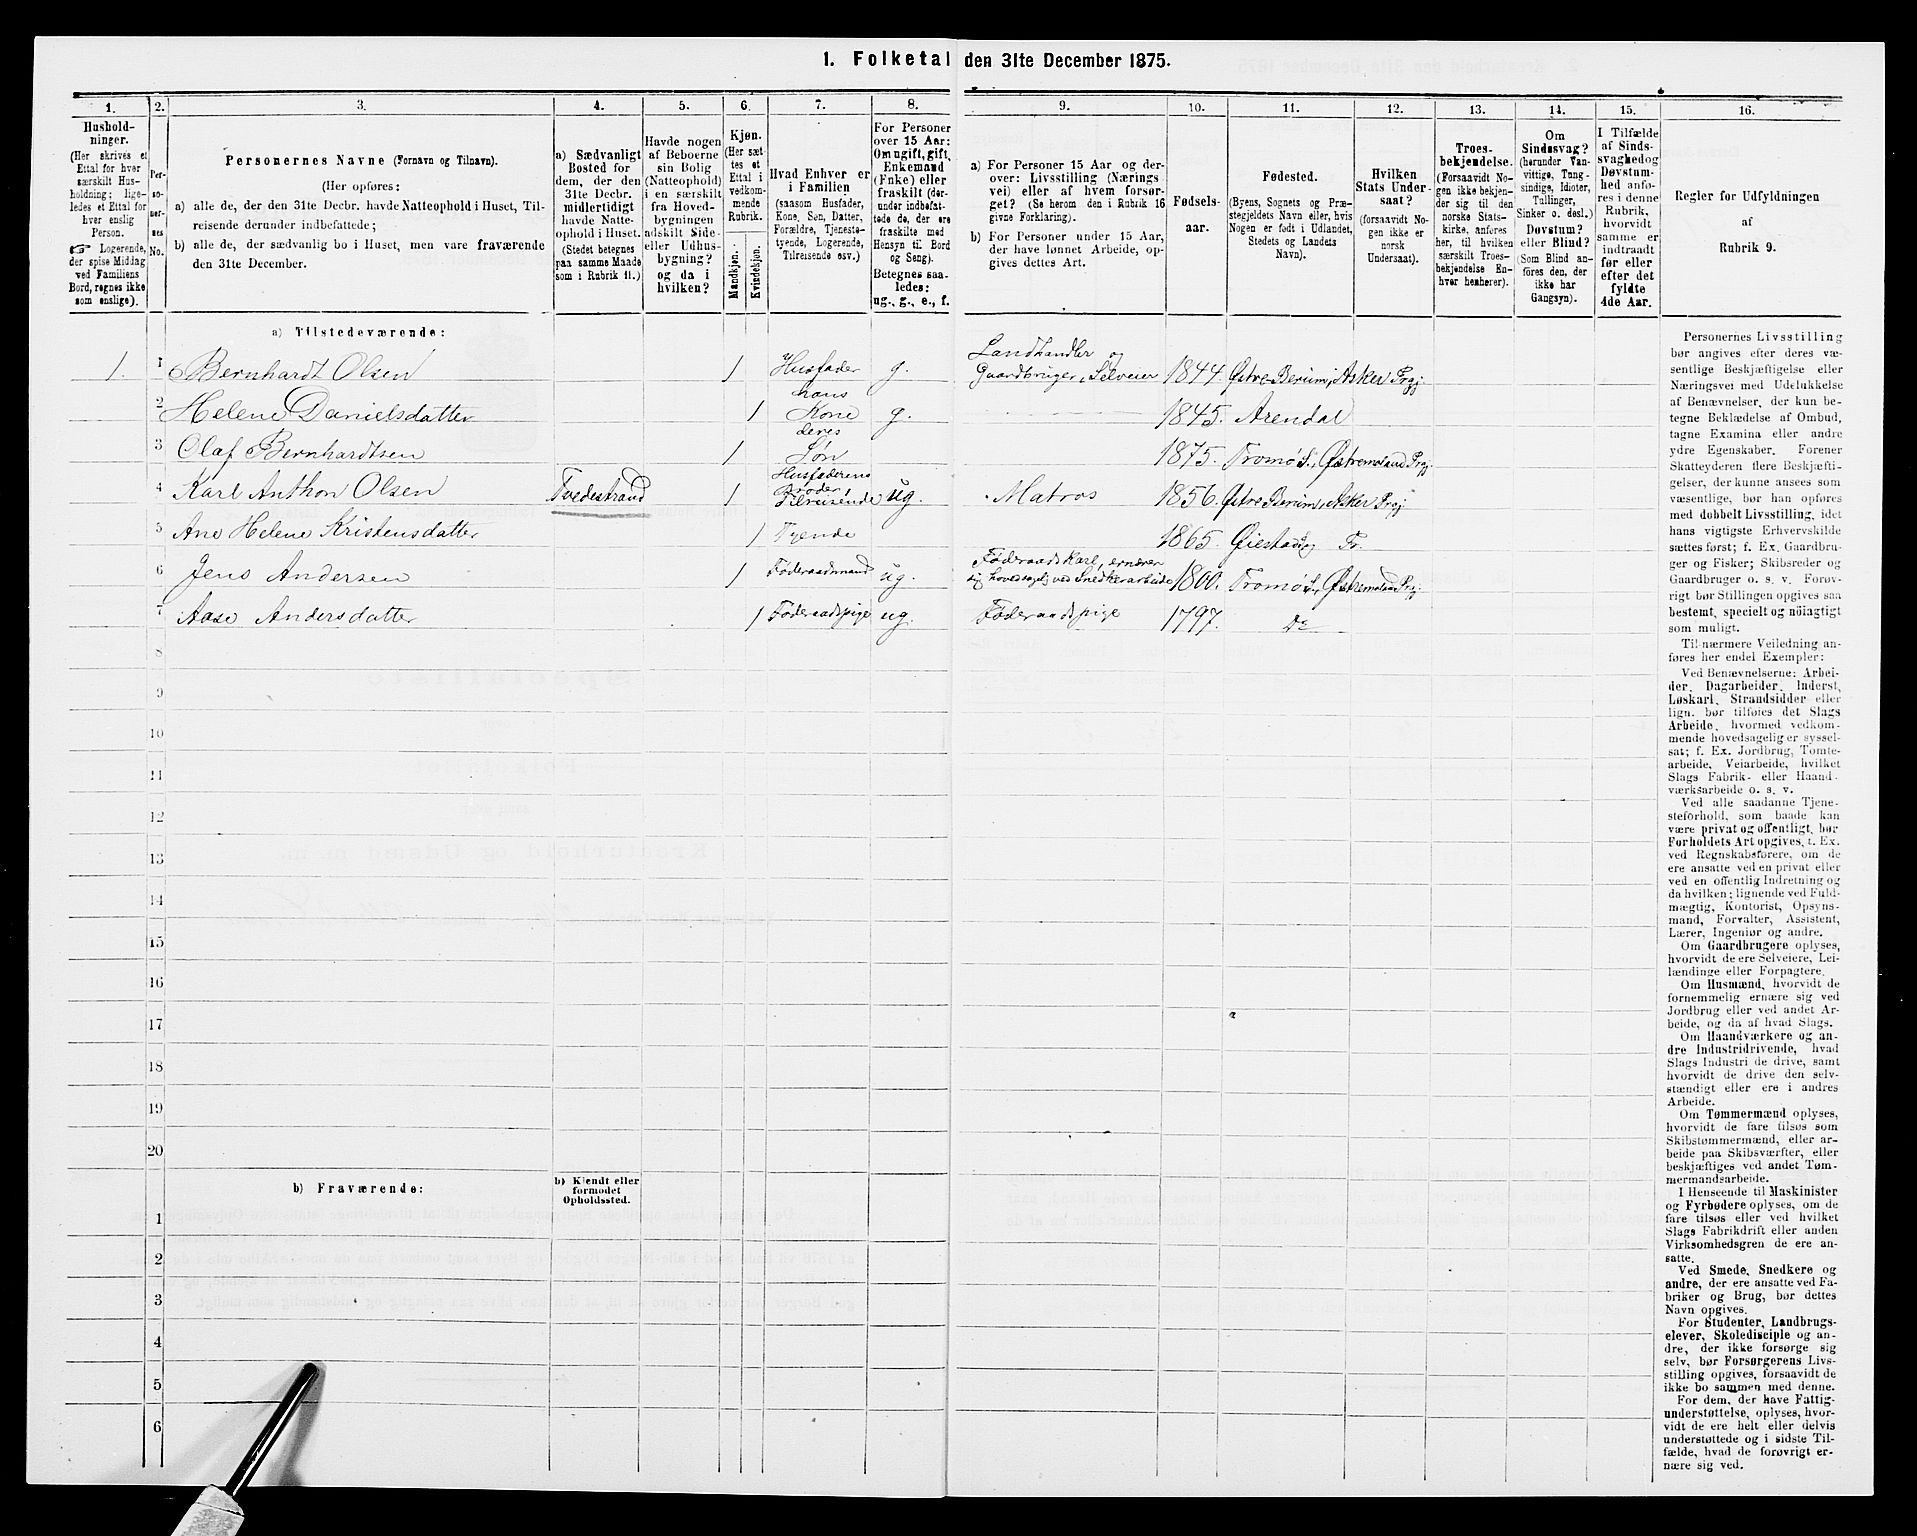 1. Folketal den 31te December 1875.
1. 2. 3. 4. 5. 6. 7. 8. 9. 10. 11. 12. 13. 14. 15. 16.
Hushold-
ninger.
(Her skrives et
Ettal for hver
særskilt Hus-
holdning; lige-
ledes et Ettal for
hver enslig
Person.
☞ Logerende,
der spise Middag
ved Familiens
Bord, regnes ikke
som enslige).
Per-
so-
ner-
nes
No.
Personernes Navne (Fornavn og Tilnavn).
(Her opføres:
a) alle de, der den 31te Decbr. havde Natteophold i Huset, Til-
reisende derunder indbefattede;
b) alle de, der sædvanlig bo i Huset, men vare fraværende
den 31te December.
a) Sædvanligt
Bosted for
dem, der den
31te Decbr.
midlertidigt
havde Natte-
ophold i Huset.
(Stedet betegnes
paa samme Maade
som i Rubrik 11.)
Havde nogen
af Beboerne
sin Bolig
(Natteophold)
i en særskilt
fra Hoved-
bygningen
adskilt Side-
eller Udhus-
bygning?
og da i
hvilken?
Kjøn.
(Her sæt-
tes et
Ettal i
vedkom-
mende
Rubrik.
Mandkjøn.
Kvindekjøn.
Hvad Enhver er
i Familien
(saasom Husfader,
Kone, Søn, Datter,
Forældre, Tjeneste-
tyende, Logerende,
Tilreisende osv.)
For Personer
over 15 Aar:
Om ugift, gift,
Enkemand
(Enke) eller
fraskilt (der-
under indbefat-
tede de, der ere
fraskilte med
Hensyn til Bord
og Seng).
Betegnes saa-
ledes:
ug., g., e., f.
a) For Personer 15 Aar og der-
over: Livsstilling (Nærings-
vei) eller af hvem forsør-
get? (Se herom den i Rubrik 16
givne Forklaring).
b) For Personer under 15 Aar,
der have lønnet Arbeide, op-
gives dettes Art.
Fødsels-
aar.
Fødested.
(Byens, Sognets og Præ-
stegjeldets Navn eller, hvis
Nogen er født i Udlandet,
Stedets og Landets
Navn).
Hvilken
Stats Under-
saat?
(forsaavidt No-
gen ikke er
norsk
Undersaat).
Troes-
bekjendelse.
(Forsaavidt No-
gen ikke bekjen-
der sig til den
norske Stats-
kirke, anføres
her, til hvilken
særskilt Troes-
bekjendelse En-
hver henhører).
Om
Sindssvag?
(herunder Van-
vittige, Tung-
sindige, Idioter,
Tullinger,
Sinker o. desl.)
Døvstum?
eller Blind?
(Som Blind an-
føres den, der
ikke har
Gangsyn).
I Tilfælde
af Sinds-
svaghed og
Døvstum-
hed anfø-
res i denne
Rubrik,
hvorvidt
samme er
indtraadt
før eller
efter det
fyldte
4de Aar.
Regler for Udfyldningen
af
Rubrik 9.
a) Tilstedeværende:
1. 1 Bernhardt Olsen 1 Husfader g. Landhandler og Gaardbruger, Selveier 1844. Østre Berum, Asker Prgj
2 Helene Danielsdatter 1 hans Kone g. 1845. Arendal
3 Olaf Bernhardtsen 1 deres Søn 1875. Tromø S., Østremoland Prgj.
4 Karl Anthon Olsen Tvedestrand 1 Husfaderens Broder Tilreisende ug. Matros 1856. Østre Berum, Asker Prgj
5 Ane Helene Kristensdatter 1 Tyende 1865. Øiestad
6 Jens Andersen 1 Føderaadsmand ug. Føderaadskarl, ernærer sig hovedsagelig ved Snedkerarbeide 1800. Tromø S., Østremoland Prgj.
7 Aase Andersdatter 1 Føderaadspige ug. Føderaadspige 1797. Do
8
9
10
11
12
13
14
15
16
17
18
19
20
b) Fraværende:
b) Kjendt eller
formodet
Opholdssted.
1
2
3
4
5
6
Personernes Livsstilling
bør angives efter deres væ-
sentlige Beskjæftigelse eller
Næringsvei med Udelukkelse
af Benævnelser, der kun be-
tegne Beklædelse af Ombud,
tagne Examina eller andre
ydre Egenskaber. Forener
Skatteyderen flere Beskjæfti-
gelser, der kunne ansees som
væsentlige, bør han opføres
med dobbelt Livsstilling, idet
hans vigtigste Erhvervskilde
sættes først; f. Ex. Gaardbru-
ger og Fisker; Skibsreder og
Gaardbruger o. s. v. Forøv-
rigt bør Stillingen opgives saa
bestemt, specielt og nöiagtigt
som muligt.
Til nærmere Veiledning an-
føres her endel Exempler:
Ved Benævnelserne: Arbei-
der, Dagarbeider, Inderst,
Løskarl, Strandsidder eller
lign. bør tilføies det Slags
Arbeide, hvormed vedkom-
mende hovedsagelig er syssel-
sat; f. Ex. Jordbrug, Tomte-
arbeide, Veiarbeide, hvilket
Slags Fabrik- eller Haand-
værksarbeide o. s. v.
Ved alle saadanne Tjene-
steforhold, som baade kan
være privat og offentligt, bør
Forholdets Art opgives, f. Ex.
ved Regnskabsførere, om de
ere ansatte ved en privat eller
ved en offentlig Indretning og
da hvilken; lignende ved Fuld-
mægtig, Kontorist, Opsyns-
mand, Forvalter, Assistent,
Lærer, Ingeniør og andre.
Om Gaardbrugere oplyses,
hvorvidt de ere Selveiere, Lei-
lændinge eller Forpagtere.
Om Husmænd, hvorvidt de
fornemmelig ernære sig ved
Jordbrug eller ved andet Ar-
beide, og da af hvad Slags.
Om Haandværkere og an-
dre Industridrivende, hvad
Slags Industri de drive, samt
hvorvidt de drive den selv-
stændigt eller ere i andres
Arbeide.
Om Tømmermænd oplyses,
hvorvidt de fare tilsøs som
Skibstømmermænd, eller ar-
beide paa Skibsværfter, eller
beskjæftiges ved andet Tøm-
mermandsarbeide.
I Henseende til Maskinister
og Fyrbødere oplyses, om de
fare tilsøs eller ved hvilket
Slags Fabrikdrift eller anden
Virksomhedsgren de ere an-
satte.
Ved Smede, Snedkere og
andre, der ere ansatte ved Fa-
briker og Brug, bør dettes
Navn opgives.
For Studenter, Landbrugs-
elever, Skoledisciple og an-
dre, der ikke forsørge sig
selv, bør Forsørgerens Livs-
stilling opgives, forsaavidt de
ikke bo sammen med denne.
For dem, der have Fattig-
understøttelse, oplyses, hvor-
vidt de ere helt eller delvis
understøttede og i sidste Til-
fælde, hvad de forøvrigt er-
nære sig ved.